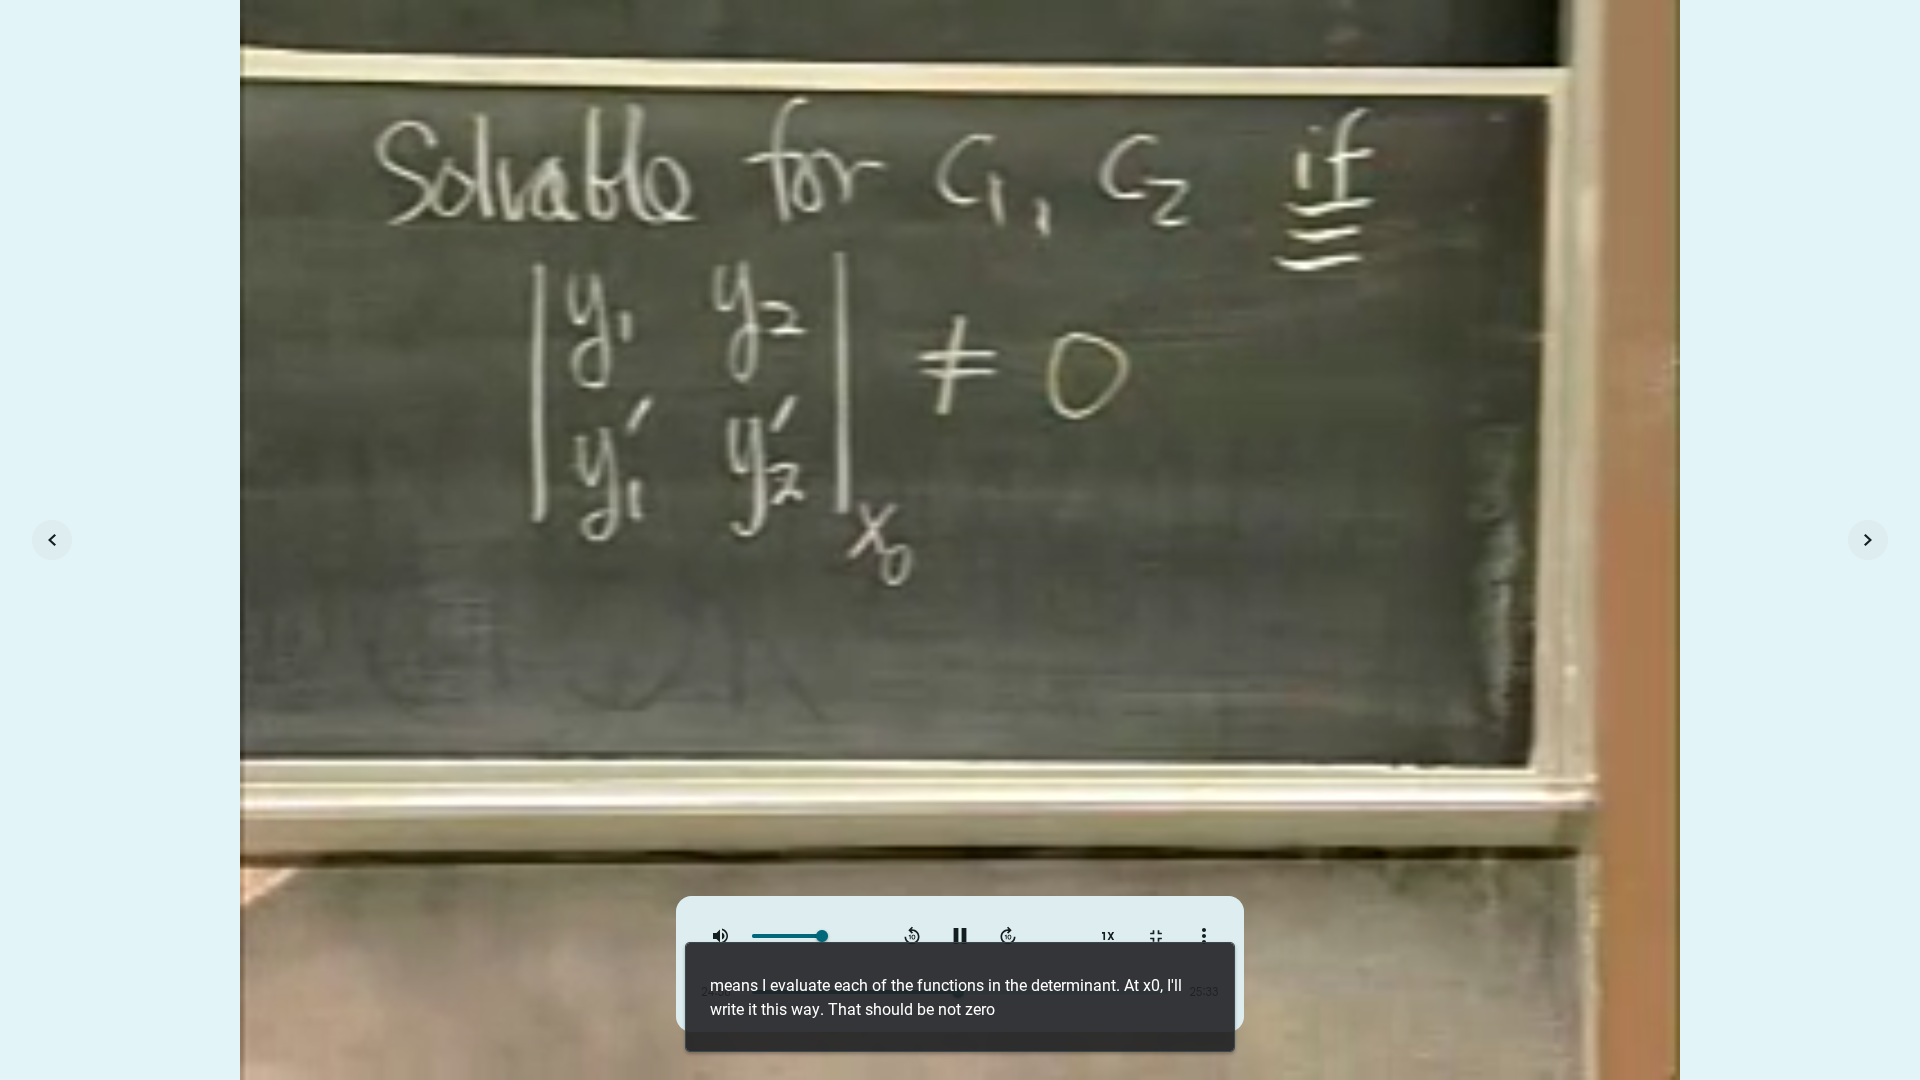 Solvable for c₁, c₂ if
| y₁ y₂ |
| y₁′ y₂′ |x₀ ≠ 0
1X
means I evaluate each of the functions in the determinant. At x0, I'll
write it this way. That should be not zero
25:33